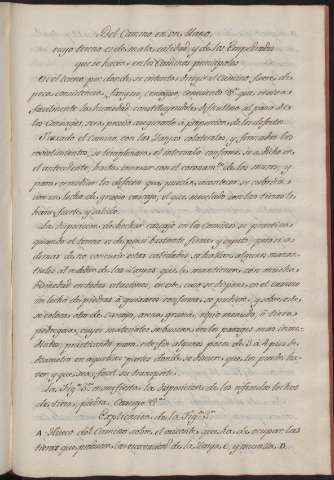 Del Camino en un llano,
cuyo terreno es de mala calidad, y de los Empedrados
que se hacen en los Caminos principales
Si el terreno por donde se intenta dirigir el Camino, fuere de
poca consistencia, fangoso, cenagoso, que resista
facilmente la humedad constituyendo dificultoso el paso de
los Carruages, será preciso augmentar a proporcion de los defectos.
Trazado el camino, con las Zanjas colaterales, y formados los
revestimientos, se terraplenará el intervalo conforme se ha dicho en
el antecedente, hasta enrasar con el de los muros, y
para remediar los defectos que puedan acontecer se cubrirá
con un lecho de grueso cascajo, el que mezclado con las tierras
bien fuerte, y solido.
La disposicion de hechar cascajo en los Caminos se practica
quando el terreno es de piso bastante firme, y enjuto; pero si a
demas de no concurrir estas calidades se hallan algunos manan-
tiales al rededor de las Zanjas que le mantienen con mucha
humedad en todas estaciones, en este caso se dispone en el camino
un lecho de piedras o guijarros conforme se pudiere. Y sobre este
se coloca otro de cascajo, arena, grava, ripio menudo, o tierra
pedregosa, cuyos materiales se buscan en los parages mas inme-
diatos, practicando para esto fin algunos pozos de 3 a 4 pies de
en aquellas partes donde se discurre que los puede ha-
ver, y que sea facil su transporte.
La Fig.ª 3.ª manifiesta la disposicion de los referidos lechos
de tierra, piedra, Cascajo &.ª
Explicacion de la Fig.ª 3.ª
A. Hueco del Camino sobre el que ha de ocupar las
tierras que producen las excavaciones de la Zanja C, y muralla D.